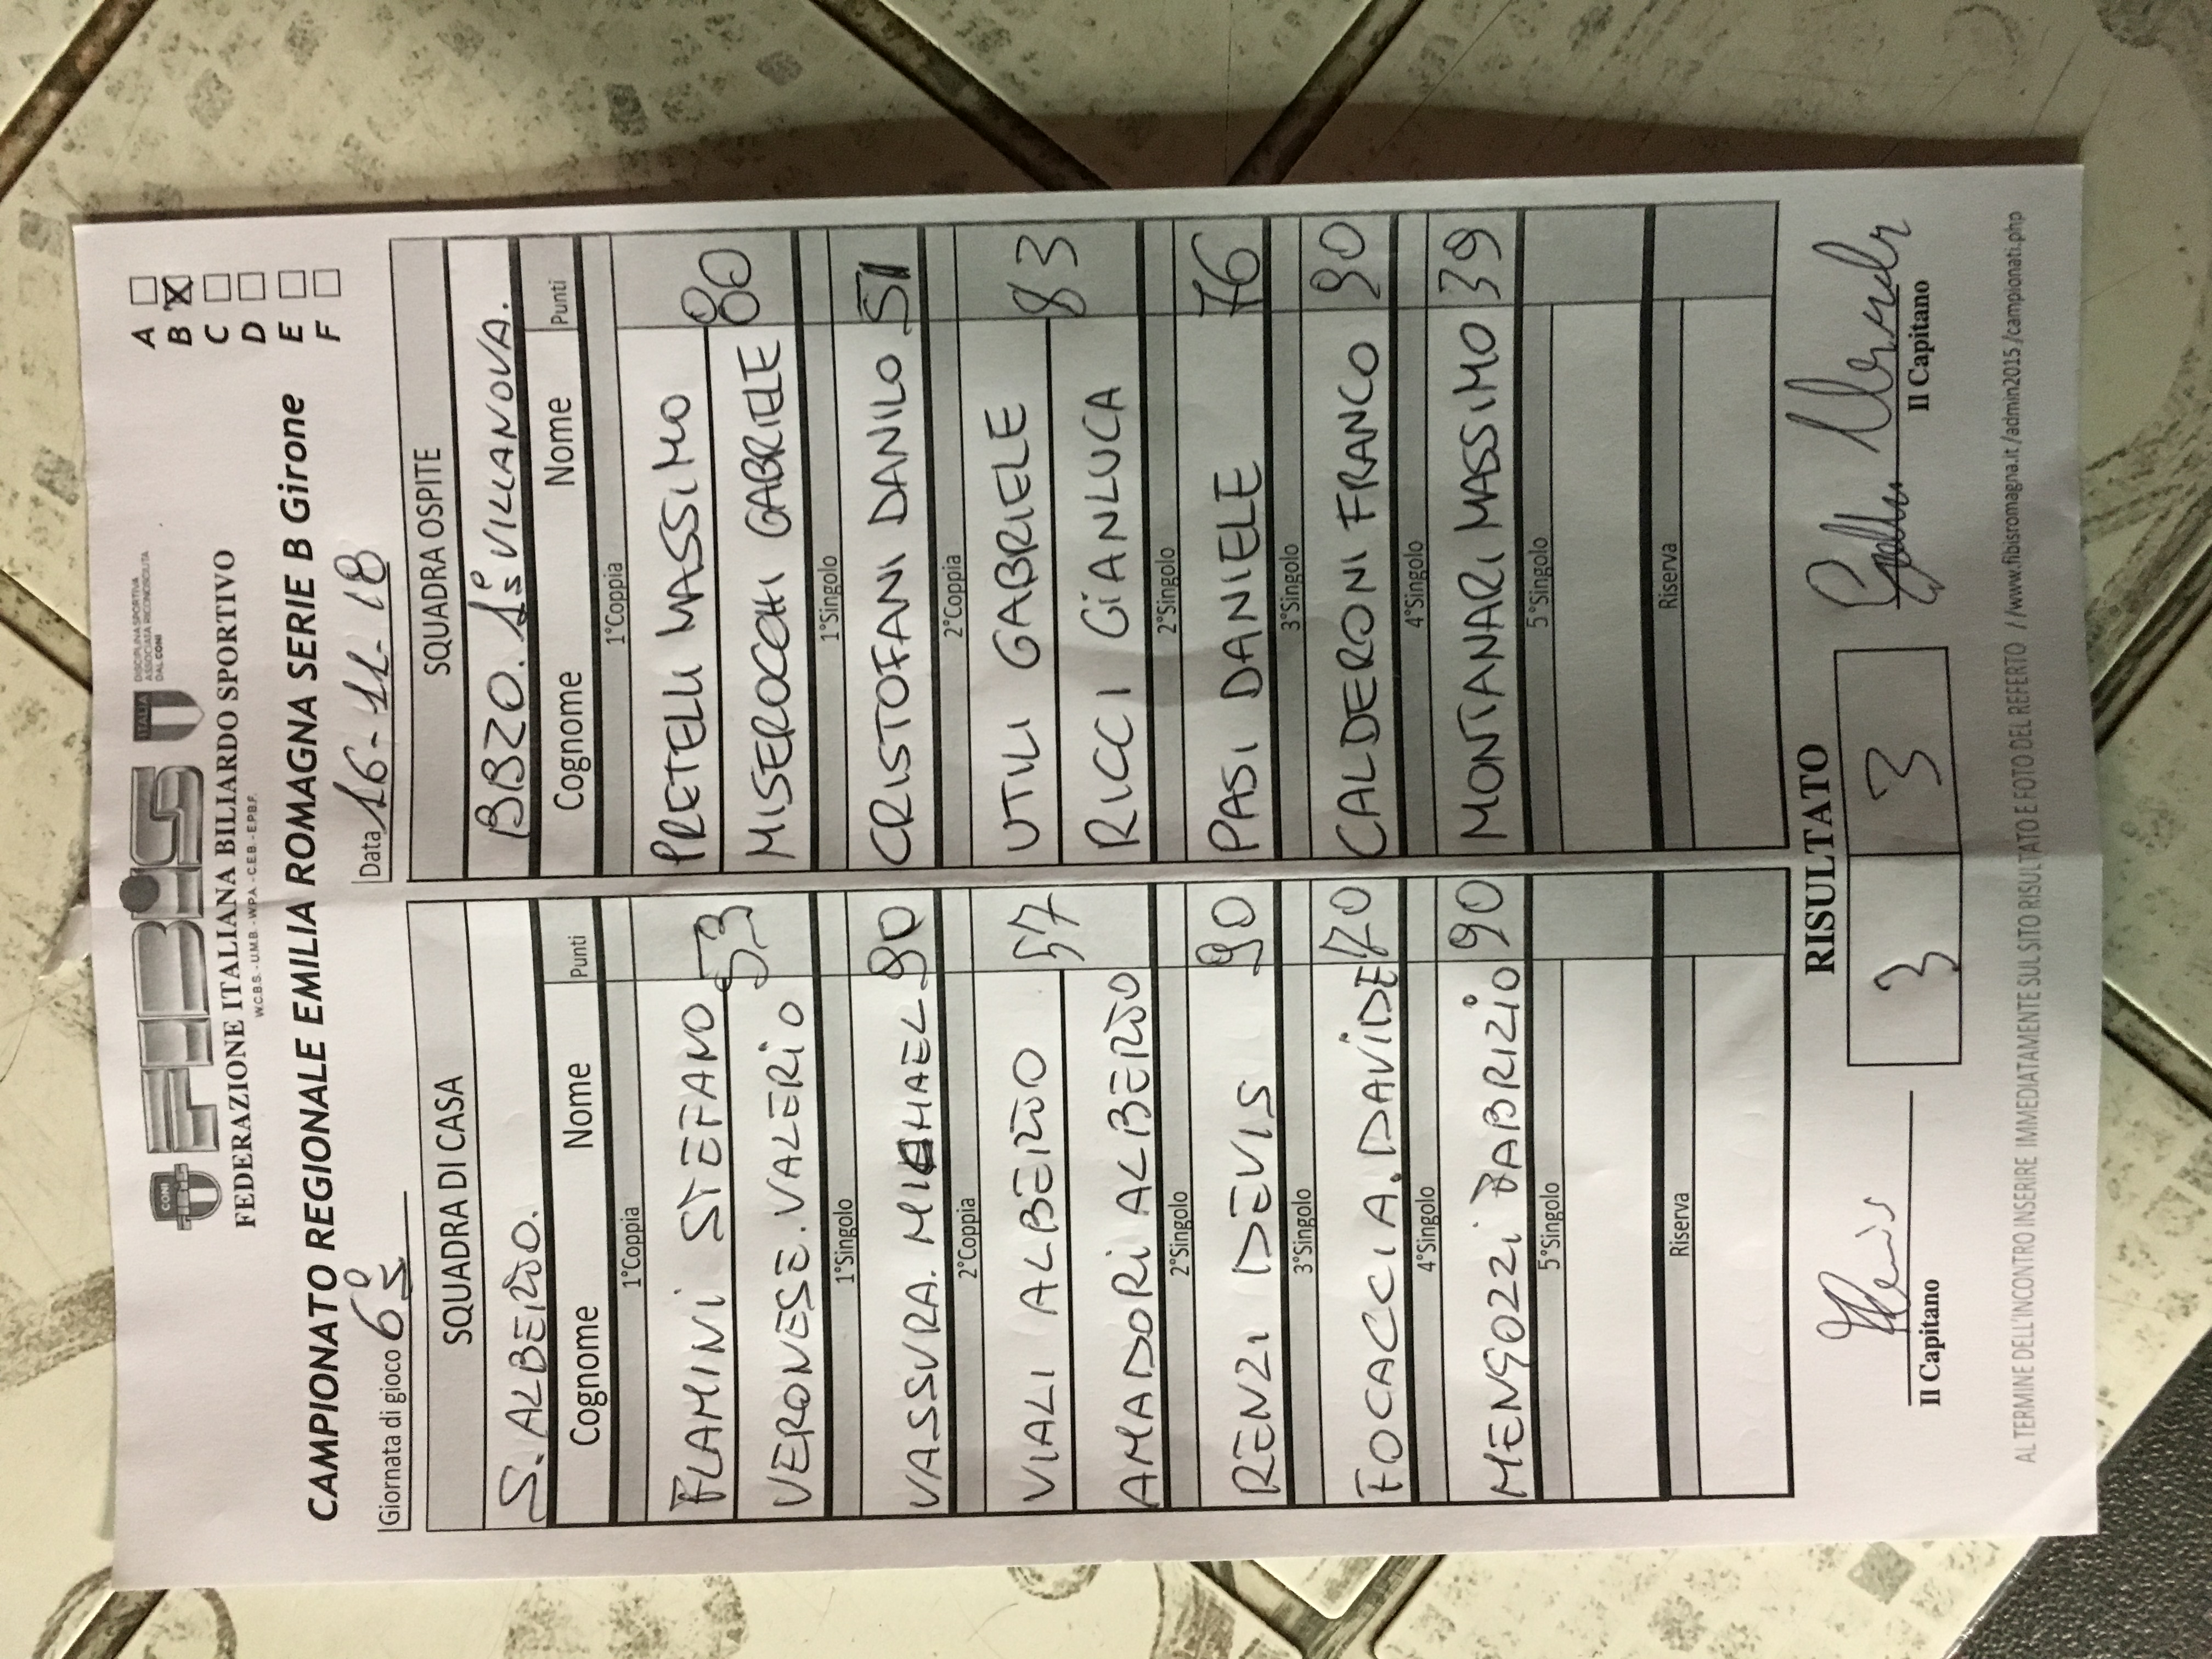 CONI
FIBiS
ITALIA
DISCIPLINA SPORTIVA
ASSOCIATA RICONOSCIUTA
DAL CONI
FEDERAZIONE ITALIANA BILIARDO SPORTIVO
W.C.B.S. - U.M.B. - W.P.A. - C.E.B. - E.P.B.F.
CAMPIONATO REGIONALE EMILIA ROMAGNA SERIE B Girone
A
B X
C
D
E
F
Giornata di gioco 6°
Data 16-11-18
SQUADRA DI CASA SQUADRA OSPITE
S. ALBERTO. BBZO. 1° VILLANOVA.
Cognome Nome Punti Cognome Nome Punti
1°Coppia 1°Coppia
FLAMINI STEFANO 53 PRETELLI MASSIMO 80
VERONESE. VALERIO MISEROCCHI GABRIELE
1°Singolo 1°Singolo
VASSURA. MICHAEL 90 CRISTOFANI DANILO 51
2°Coppia 2°Coppia
VIALI ALBERTO 57 UTILI GABRIELE 83
AMADORI ALBERTO RICCI GIANLUCA
2°Singolo 2°Singolo
RENZI DEVIS 90 PASI DANIELE 76
3°Singolo 3°Singolo
FOCACCIA. DAVIDE 70 CALDERONI FRANCO 90
4°Singolo 4°Singolo
MENGOZZI FABRIZIO 90 MONTANARI MASSIMO 39
5°Singolo 5°Singolo
Riserva Riserva
RISULTATO
3 3
Il Capitano Il Capitano
AL TERMINE DELL'INCONTRO INSERIRE IMMEDIATAMENTE SUL SITO RISULTATO E FOTO DEL REFERTO //www.fibisromagna.it/admin2015/campionati.php